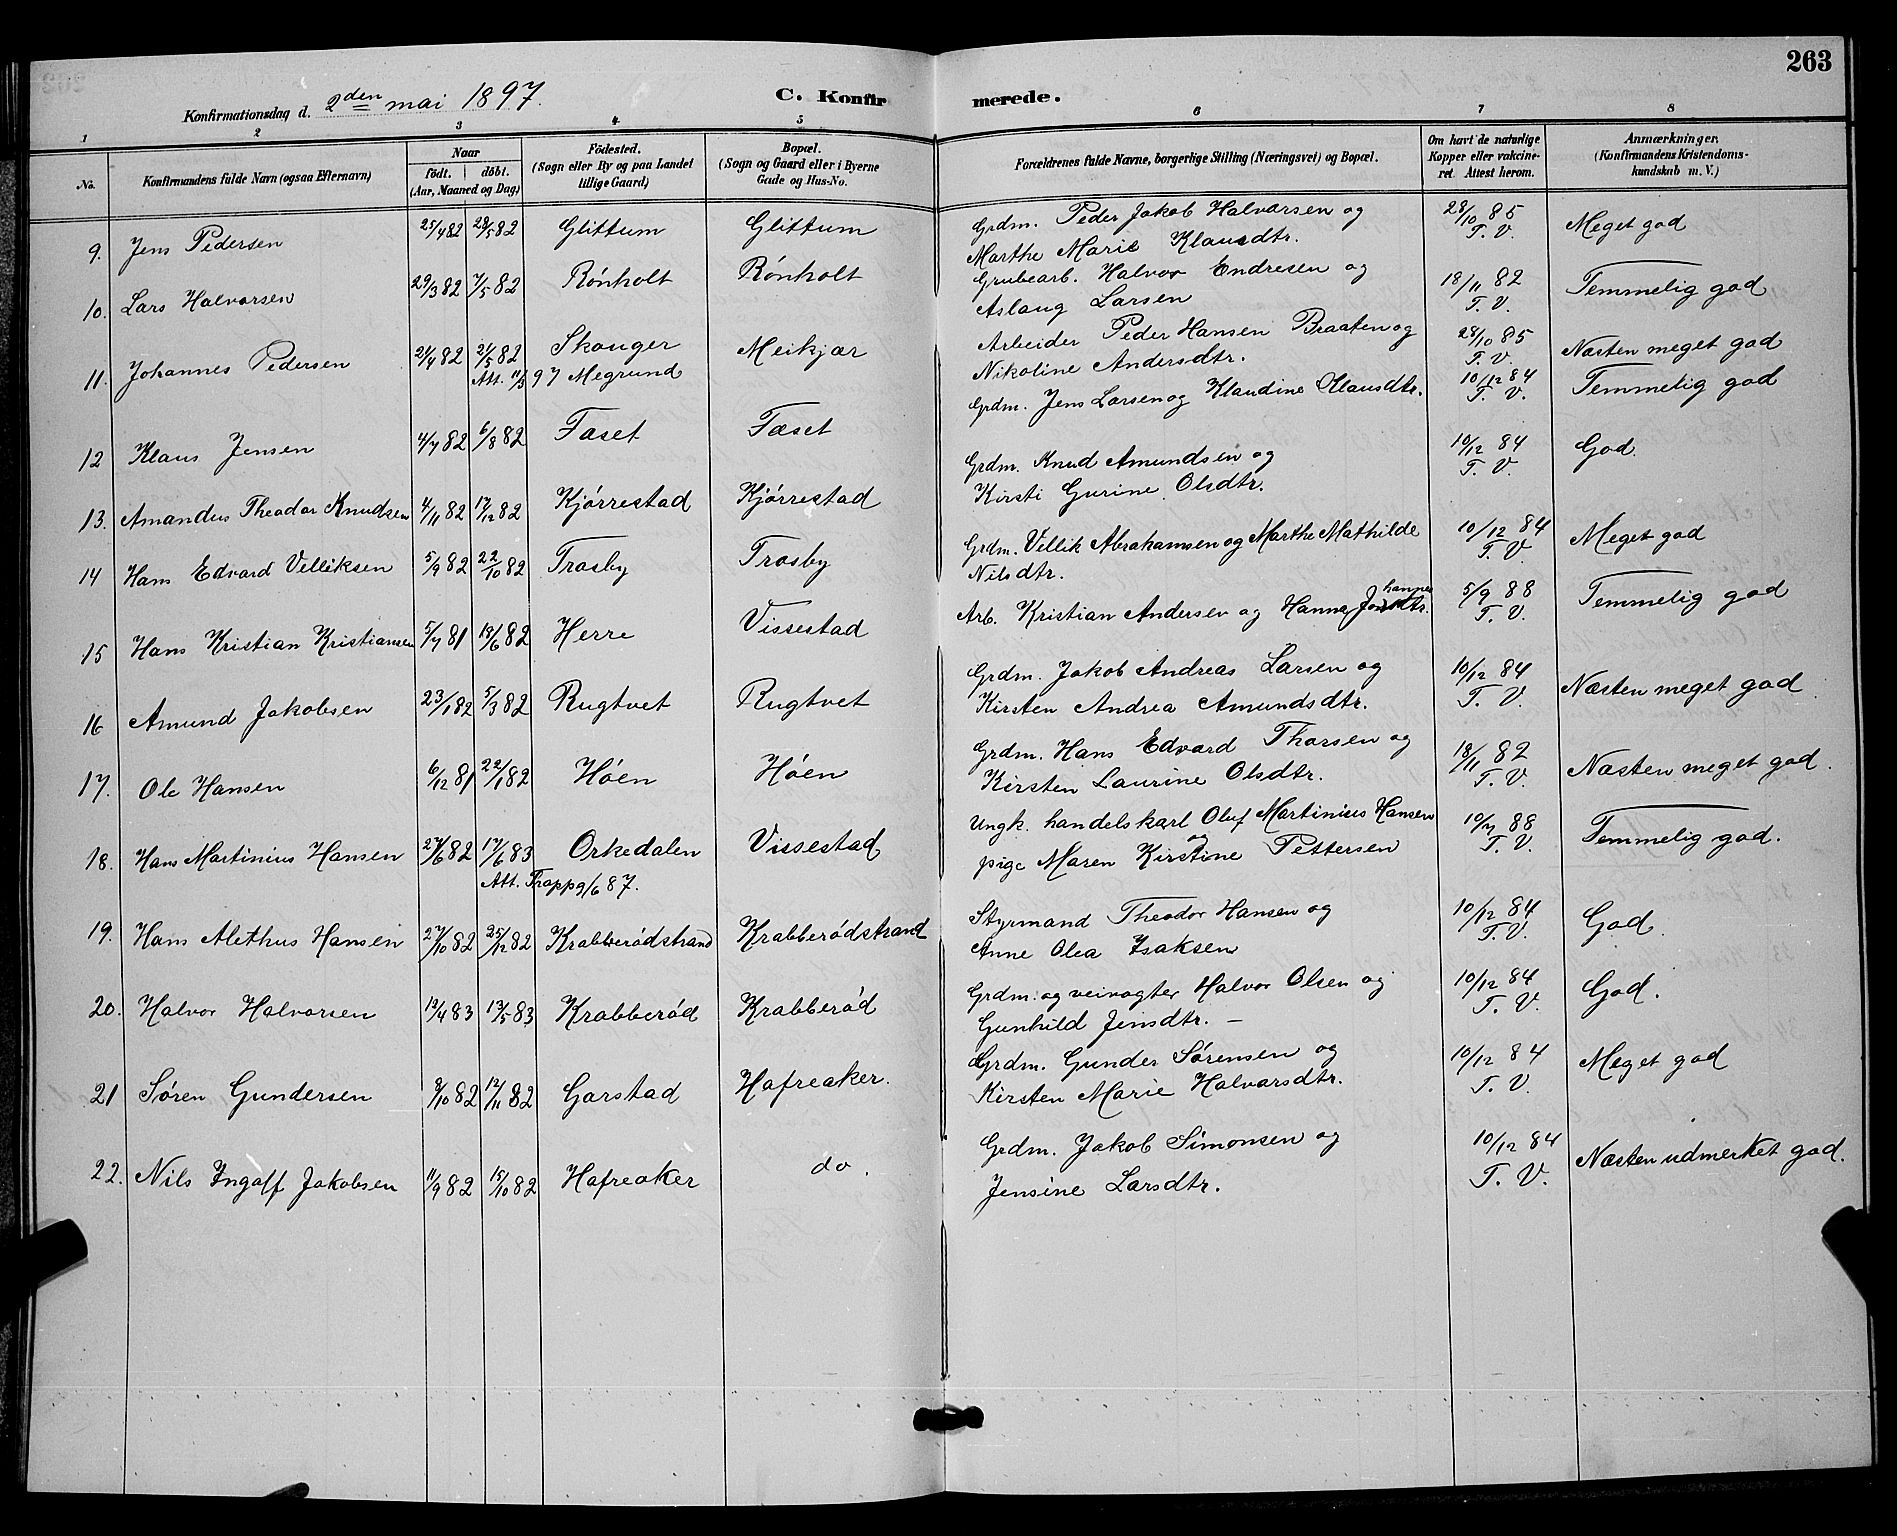 263
Konfirmationsdag d. 2den mai 1897. C. Konfirmerede.
1 2 3 4 5 6 7 8
No. Konfirmandens fulde Navn (ogsaa Efternavn) Naar födt. döbt. (Aar, Maaned og Dag) Födested. (Sogn eller By og paa Landet tillige Gaard) Bopæl. (Sogn og Gaard eller i Byerne Gade og Hus-No. Forældrenes fulde Navne, borgerlige Stilling (Næringsvei) og Bopæl. Om havt de naturlige Kopper eller vakcineret. Attest herom. Anmærkninger. (Konfirmandens Kristendomskundskab m. V.)
9. Jens Pedersen 25/4 82 29/5 82 Glittum Glittum Grdm. Peder Jakob Halvorsen og 28/10 85 Meget god
Marthe Marie Klausdtr. T. V.
10. Lars Halvorsen 29/3 82 7/5 82 Rönholt Rönholt Grubearb. Halvor Endresen og 18/11 82 Temmelig god
Aslaug Larsen T. V.
11. Johannes Pedersen 21/4 82 21/5 82 Skouger Meikjær Arbeider Peder Hansen Braaten og 28/10 85 Næsten meget god
Att. 11/3 97 Megrund Nikoline Andersdtr. T. V.
12 Klaus Jensen 4/7 82 6/8 82 Faset Fæset Grdm. Jens Larsen og Klaudine Olausdtr. 10/12 84 T. V. Temmelig god
13. Amandus Theodor Knudsen 4/11 82 17/12 82 Kjörrestad Kjörrestad Grdm. Knud Amundsen og 10/12 84 God.
Kirsti Gurine Olsdtr. T. V.
14 Hans Edvard Velliksen 5/9 82 22/10 82 Trosby Trosby Grdm. Vellik Abrahamsen og Marthe Mathilde 10/12 84 Meget god
Nilsdtr. T. V.
15 Hans Kristian Kristiansen 5/7 81 18/6 82 Herre Vissestad Arb. Kristian Andersen og Hanna Johannesdtr. 5/9 88 T. V. Temmelig god
16 Amund Jakobsen 23/1 82 5/3 82 Rugtvet Rugtvet Grdm. Jakob Andreas Larsen og 10/12 84 Næsten meget god.
Kirsten Andrea Amundsdtr. T. V.
17. Ole Hansen 6/12 81 22/1 82 Höen Höen Grdm. Hans Edvard Thorsen og 18/11 82 Næsten meget god.
Kirsten Laurine Olsdtr. T. V.
18. Hans Martinius Hansen 27/6 82 17/6 83 Orkedalen Vissestad Ungk. handelskarl Oluf Martinius Hansen 10/7 88 Temmelig god.
Att. Trapp 9/6 87. og pige Maren Kirstine Pettersen T. V.
19. Hans Alethus Hansen 27/10 82 25/12 82 Krabberödstrand Krabberödstrand Styrmand Theodor Hansen og 10/12 84 God.
Anne Olea Isaksen T. V.
20. Halvor Halvorsen 13/4 83 13/5 83 Krabberöd Krabberöd Grdm. og veivogter Halvor Olsen og 10/12 84 God.
Gunhild Jensdtr. – T. V.
21 Sören Gundersen 9/10 82 12/11 82 Garstad Hafreaker. Grdm. Gunder Sörensen og 10/12 84 Meget god
Kirsten Marie Halvorsdtr. T. V.
22. Nils Ingolf Jakobsen 11/9 82 15/10 82 Hafreaker do. Grdm. Jakob Simonsen og 10/12 84 Næsten udmerket god.
Jensine Larsdtr. T. V.